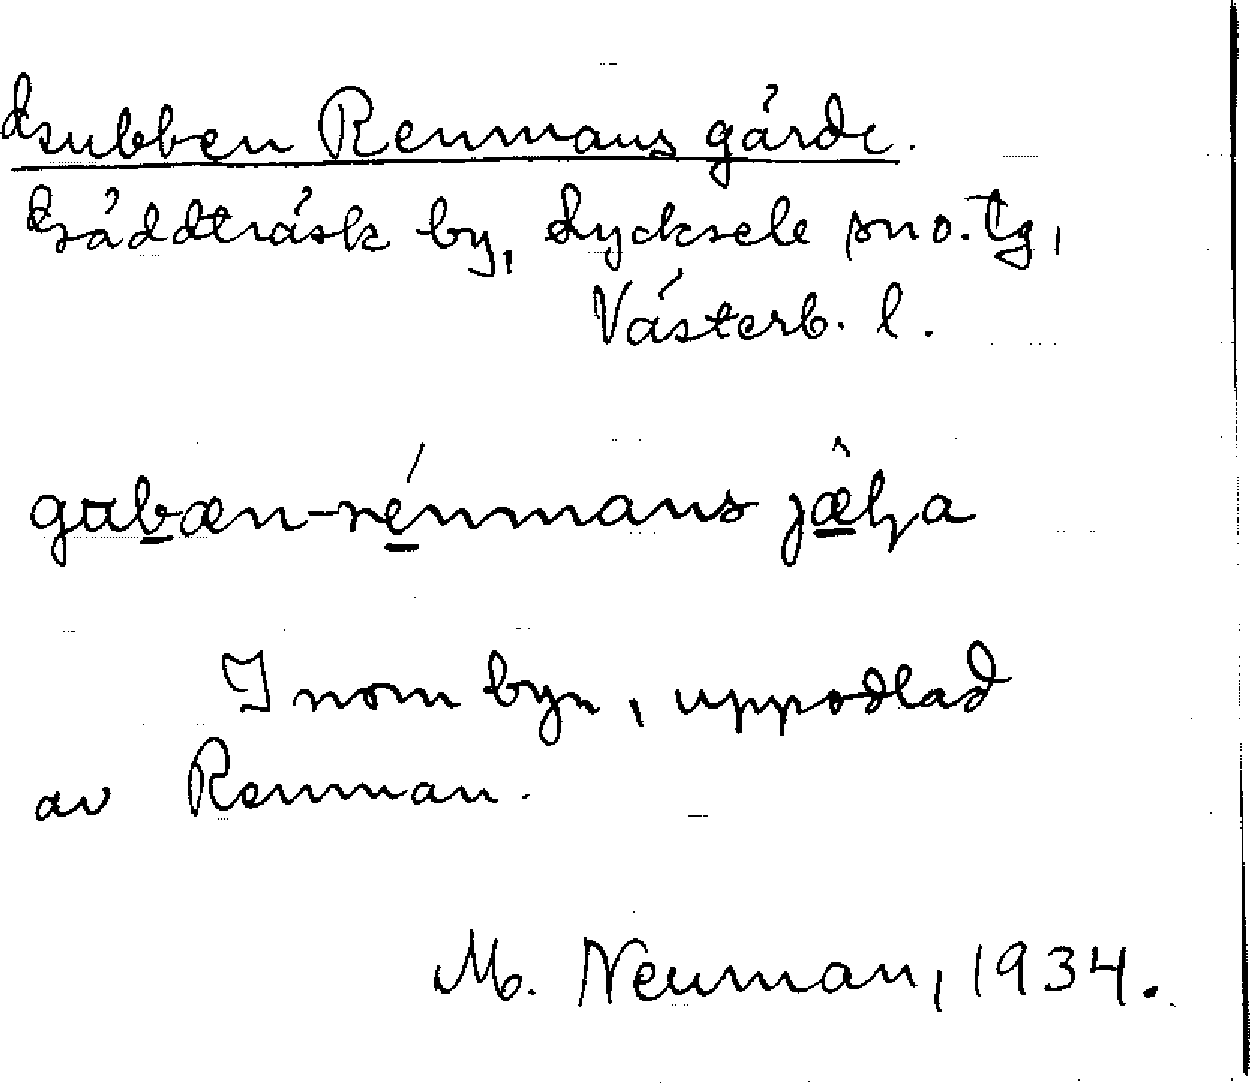 Gubben Renmans gärde.
Gäddträsk by, Lycksele sn o. tg,
Västerb. l.
gubæn-rénmans jæ̂lṣa
Inom byn, uppodlad
av Renman.
M. Neuman, 1934.